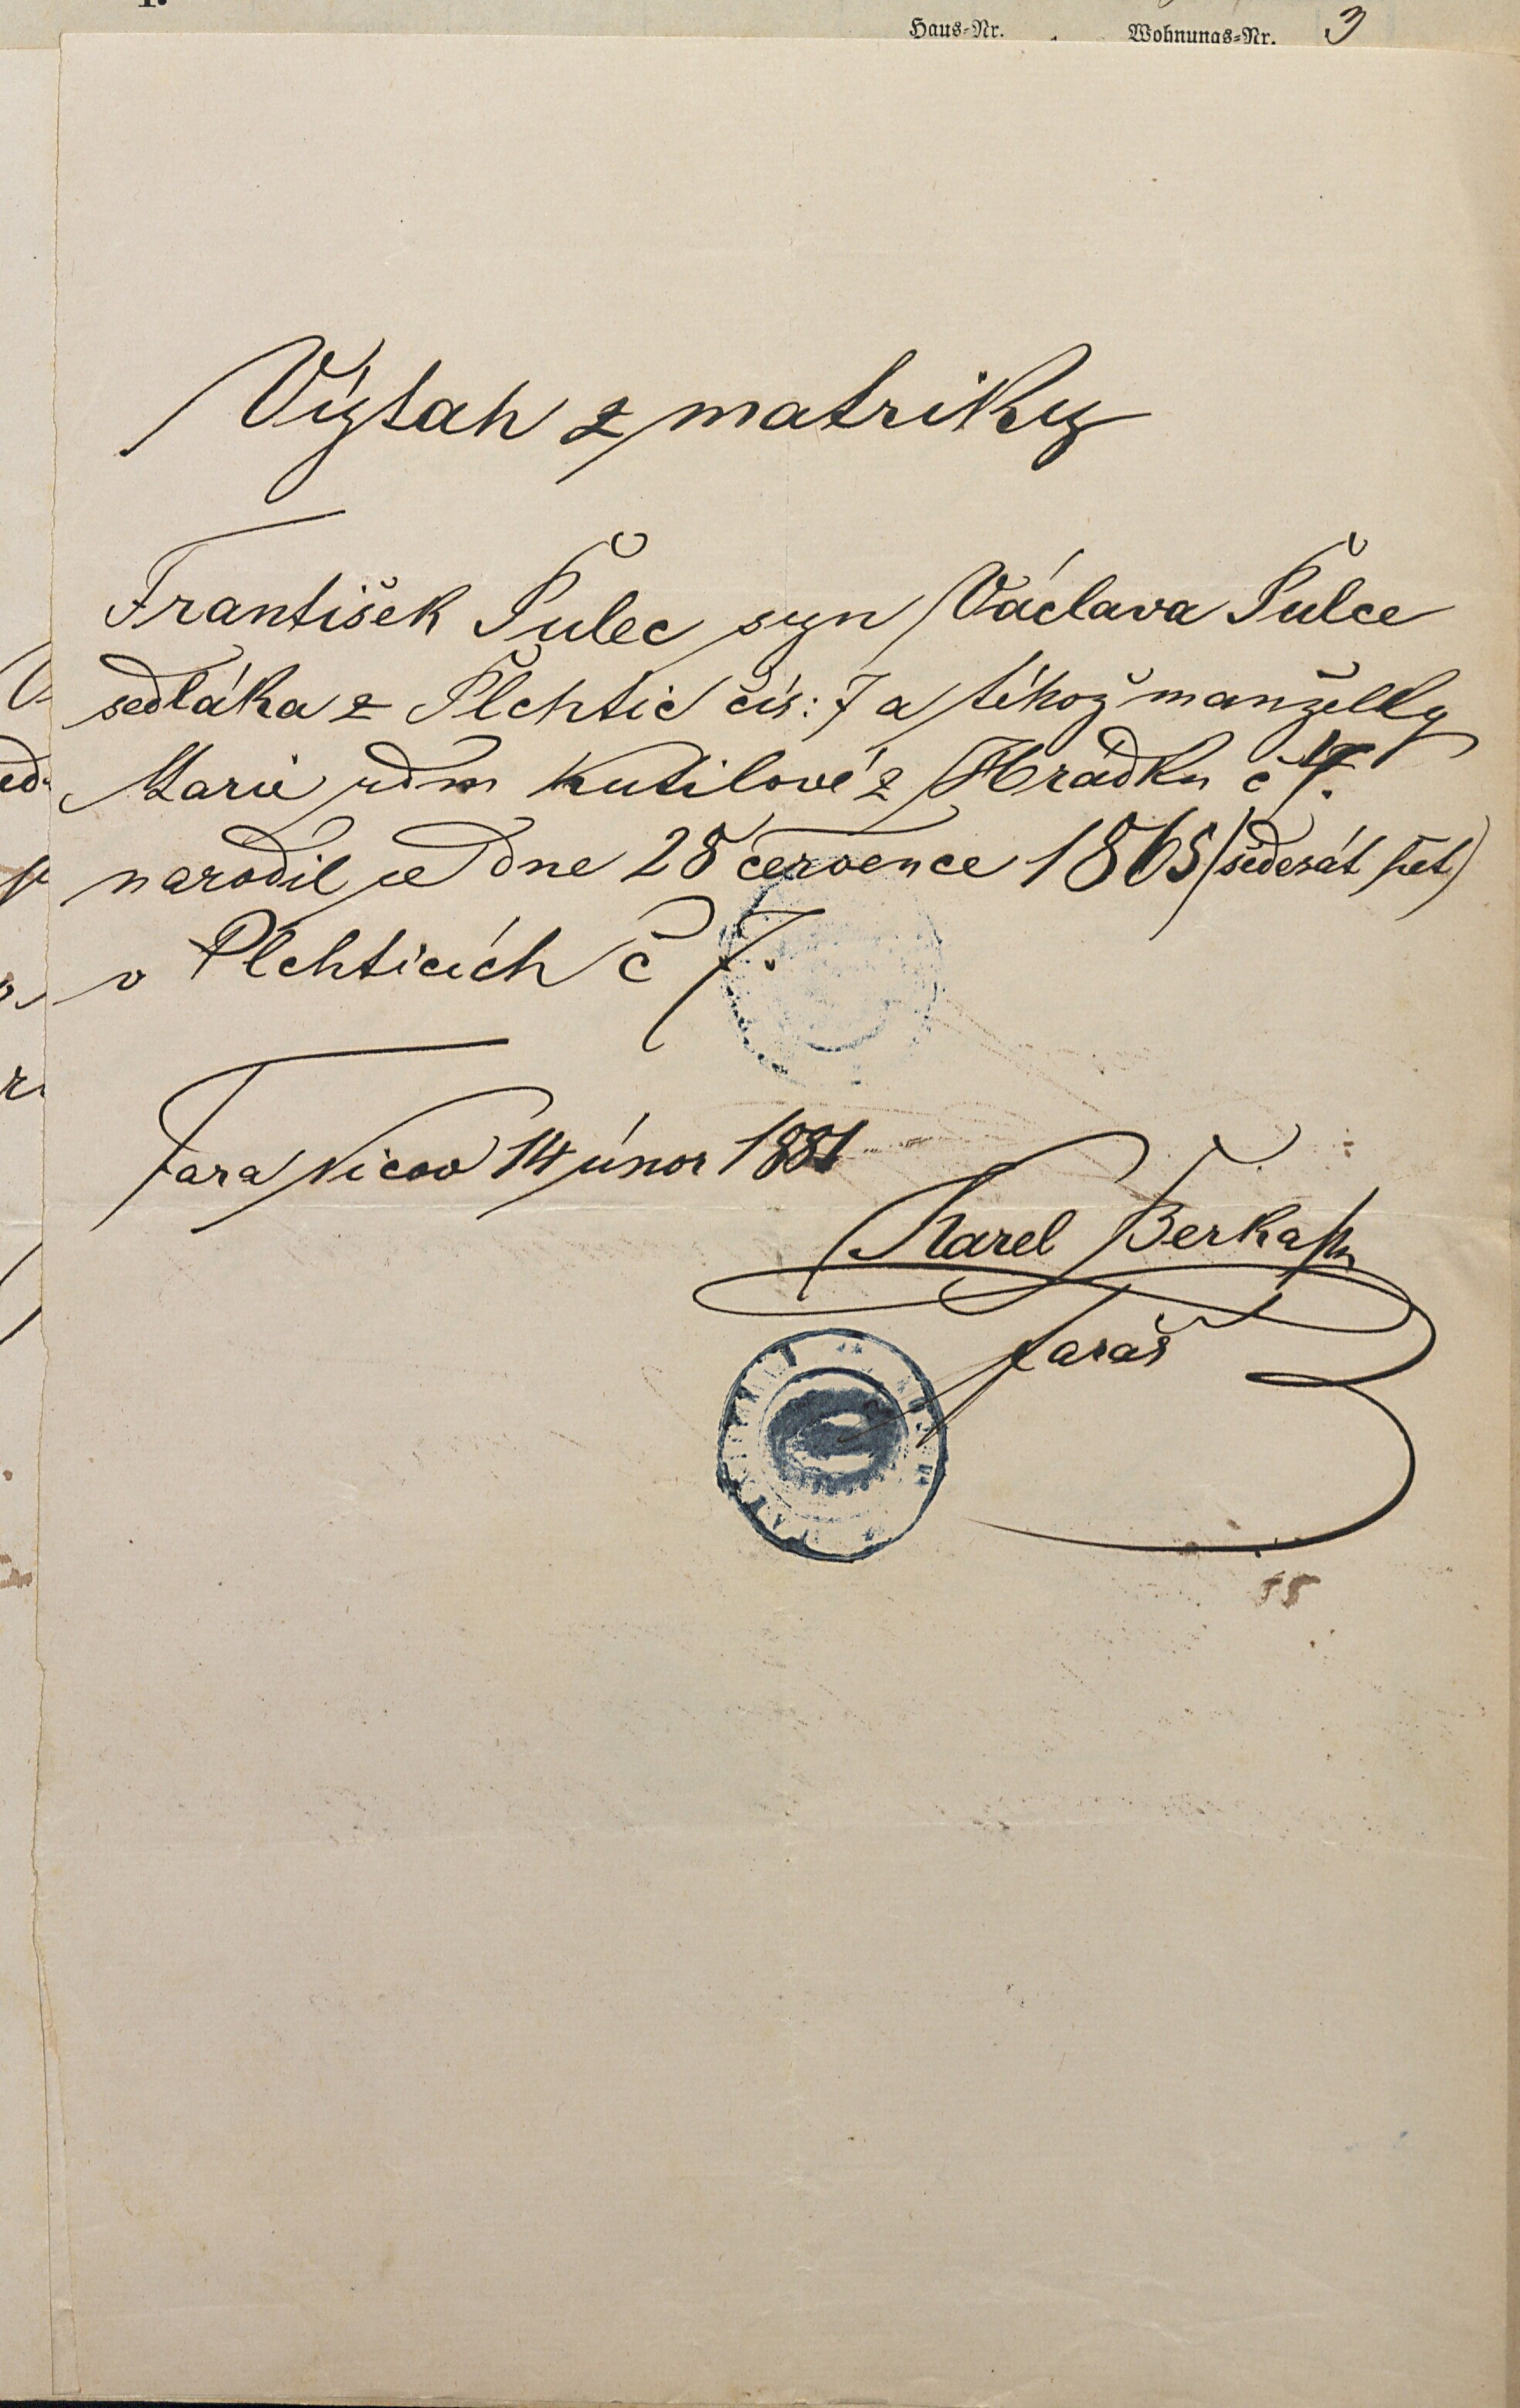 Haus-Nr. Wohnungs-Nr. 3
Výtah z matriky
František Šulec syn Václava Šulce
sedláka z Plchtic čís: 7 a téhož manželky
Marie rdm Kutilové z Hrádku č 7.
narodil se dne 28 července 1865 (šedesát pět)
v Plchticích č 7.
Fara Nicov 14 únor 1881
Karel Berka
farář